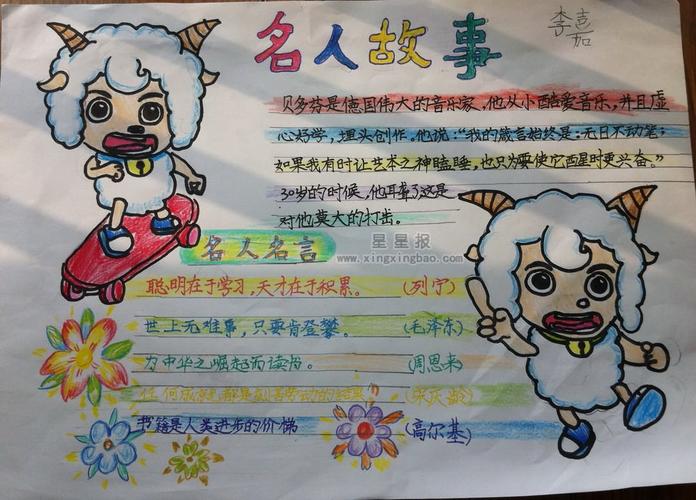 名人故事
李
嘉
贝多芬是德国伟大的音乐家,他从小酷爱音乐,并且虚
心好学,埋头创作。他说:“我的箴言始终是:无日不动笔;
如果我有时让艺术之神瞌睡,也只为要使它醒时更兴奋。”
30岁的时候,他耳聋了这是
对他莫大的打击。
星星报
www.xingxingbao.com
名人名言
聪明在于学习,天才在于积累。 (列宁)
世上无难事,只要肯登攀。 (毛泽东)
为中华之崛起而读书。 (周恩来)
任何成就都是刻苦劳动的结果 (宋庆龄)
书籍是人类进步的价梯 (高尔基)